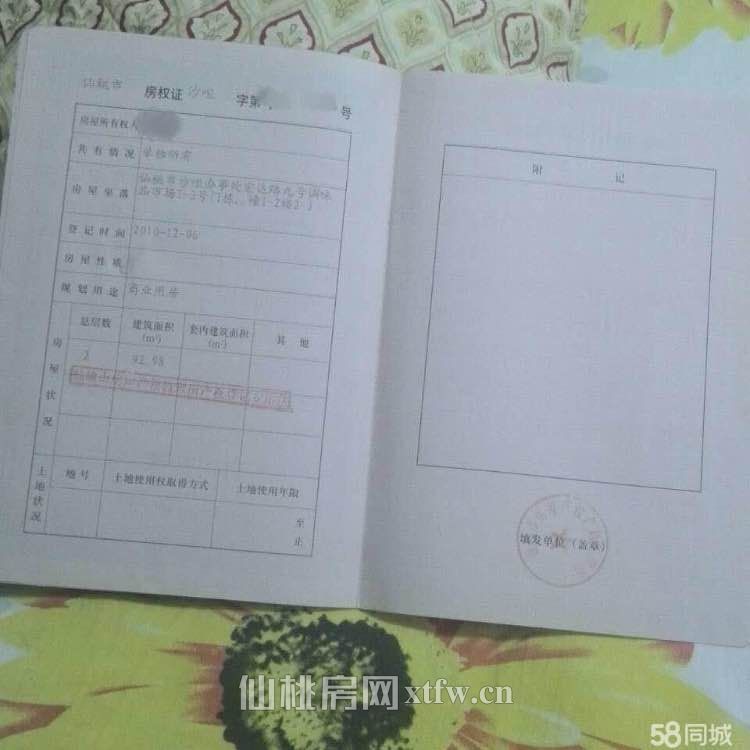 仙桃市 房权证 沙咀 字第 号
房屋所有权人
共有情况 单独所有
房屋坐落 仙桃市沙咀办事处宏达路九号调味
品市场1-2号(1栋
登记时间 2010-12-06
房屋性质
规划用途 商业用房
房屋状况
总层数 建筑面积(m²) 套内建筑面积(m²) 其他
2 92.98
土地状况
地号 土地使用权取得方式 土地使用年限
至
止
附记
填发单位(盖章)
仙桃房网xtfw.cn
58同城